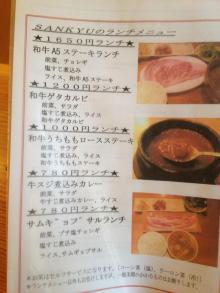 SANKYUのランチメニュー
★1650円ランチ★
和牛A5ステーキランチ
前菜、チョレギ
塩すじ煮込み
ライス、和牛A5ステーキ
★1200円ランチ★
和牛ゲタカルビ
前菜、サラダ
塩すじ煮込み、ライス
和牛ゲタカルビ
★1000円ランチ★
和牛うちももロースステーキ
前菜、サラダ
塩すじ煮込み、ライス
★780円ランチ★
牛スジ煮込みカレー
前菜、サラダ
牛すじ煮込みカレー、ライス
★780円ランチ★
サムギョプサルランチ
前菜、プチ塩チョレギ
豆腐チゲ
ライス、サムギョプサル